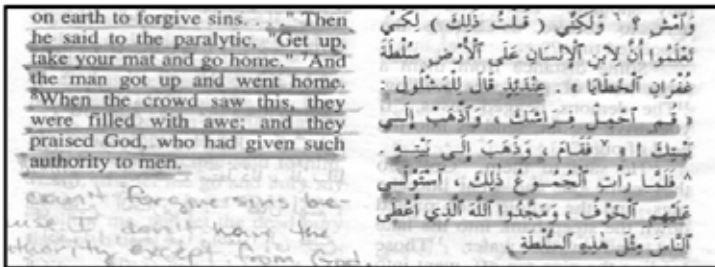 on earth to forgive sins. . . ." Then
he said to the paralytic, "Get up,
take your mat and go home." ⁷And
the man got up and went home.
⁸When the crowd saw this, they
were filled with awe; and they
praised God, who had given such
authority to men.
can't forgive sins be-
use I don't have the
thority except from God.
وَٱمْشِ ؟ ⁶ وَلَكِنِّي ( قُلْتُ ذَلِكَ ) لِكَيْ
تَعْلَمُوا أَنَّ لِابْنِ ٱلْإِنْسَانِ عَلَى ٱلْأَرْضِ سُلْطَةَ
غُفْرَانِ ٱلْخَطَايَا » . عِنْدَئِذٍ قَالَ لِلْمَشْلُولِ :
« قُمِ ٱحْمِلْ فِرَاشَكَ ، وَٱذْهَبْ إِلَى
بَيْتِكَ ! » ⁷ فَقَامَ ، وَذَهَبَ إِلَى بَيْتِهِ .
⁸ فَلَمَّا رَأَتِ ٱلْجُمُوعُ ذَلِكَ ، ٱسْتَوْلَى
عَلَيْهِمِ ٱلْخَوْفُ ، وَمَجَّدُوا ٱللهَ ٱلَّذِي أَعْطَى
ٱلنَّاسَ مِثْلَ هَذِهِ ٱلسُّلْطَةِ .